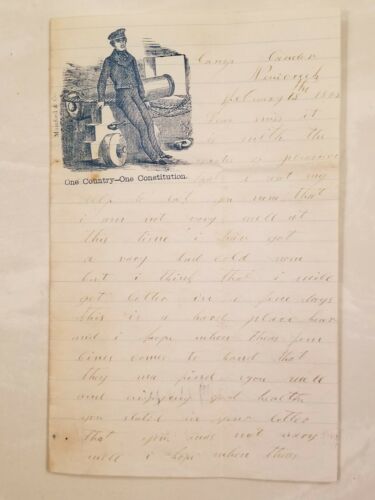 Camp Camden
February 15th 186
Dear miss it
is with the
pleasure
that I set my
self to let you now that
i am not very well at
this time i have got
a very bad cold now
but i think that i will
get better in a few days
this is a hard place hear
and i hope when these few
lines comes to hand that
they will find you well
and enjoying good health
you stated in your letter
that you was not very
well i hope when these
Magnus & Co.
One Country—One Constitution.